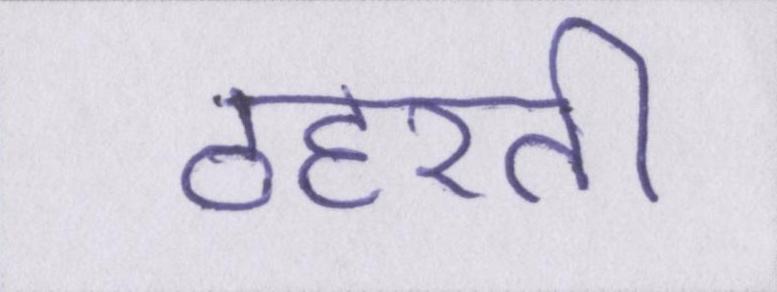 ठहरती